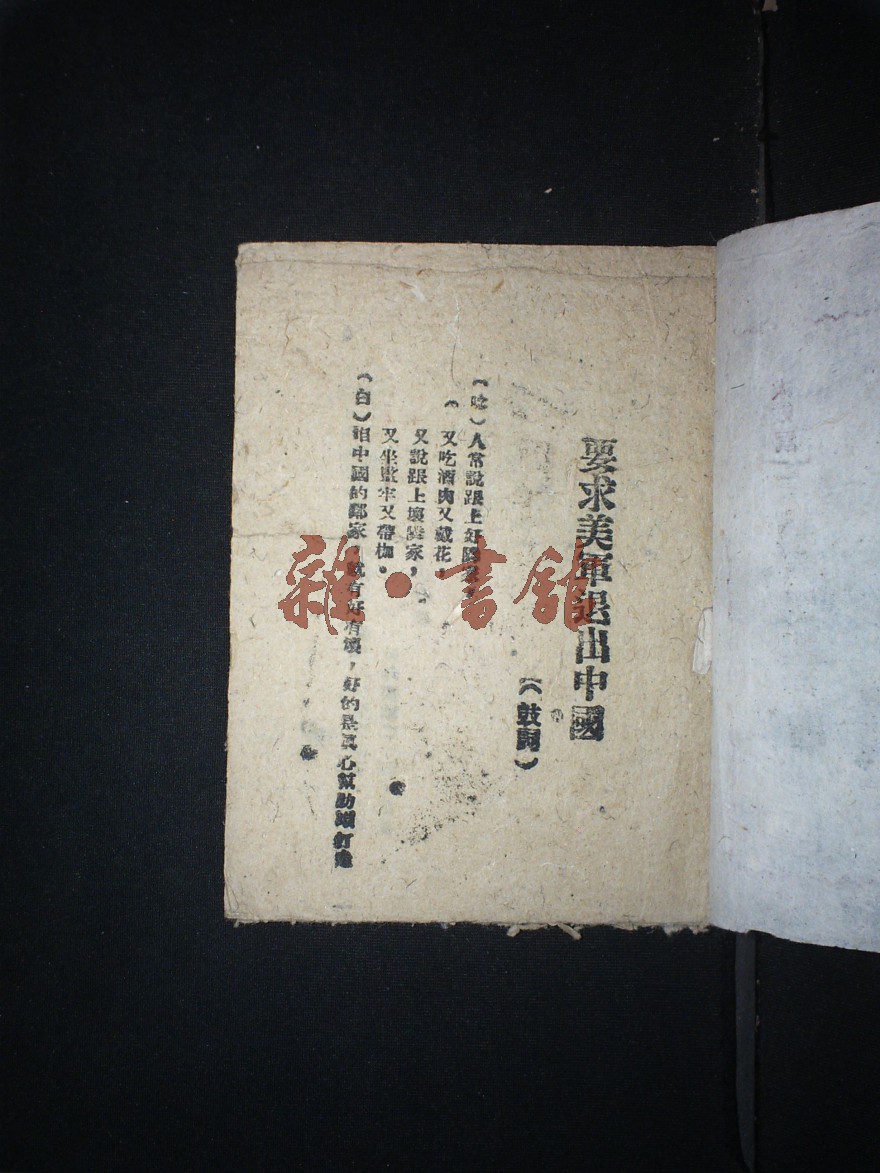 要求美軍退出中國
(鼓詞)
(唸)人常說跟上好鄰家,
又吃酒肉又戴花,
又說跟上壞鄰家,
又坐監牢又帶枷。
(白)咱中國的鄰家,就有好有壞,好的是真心幫助咱打
雜·書館